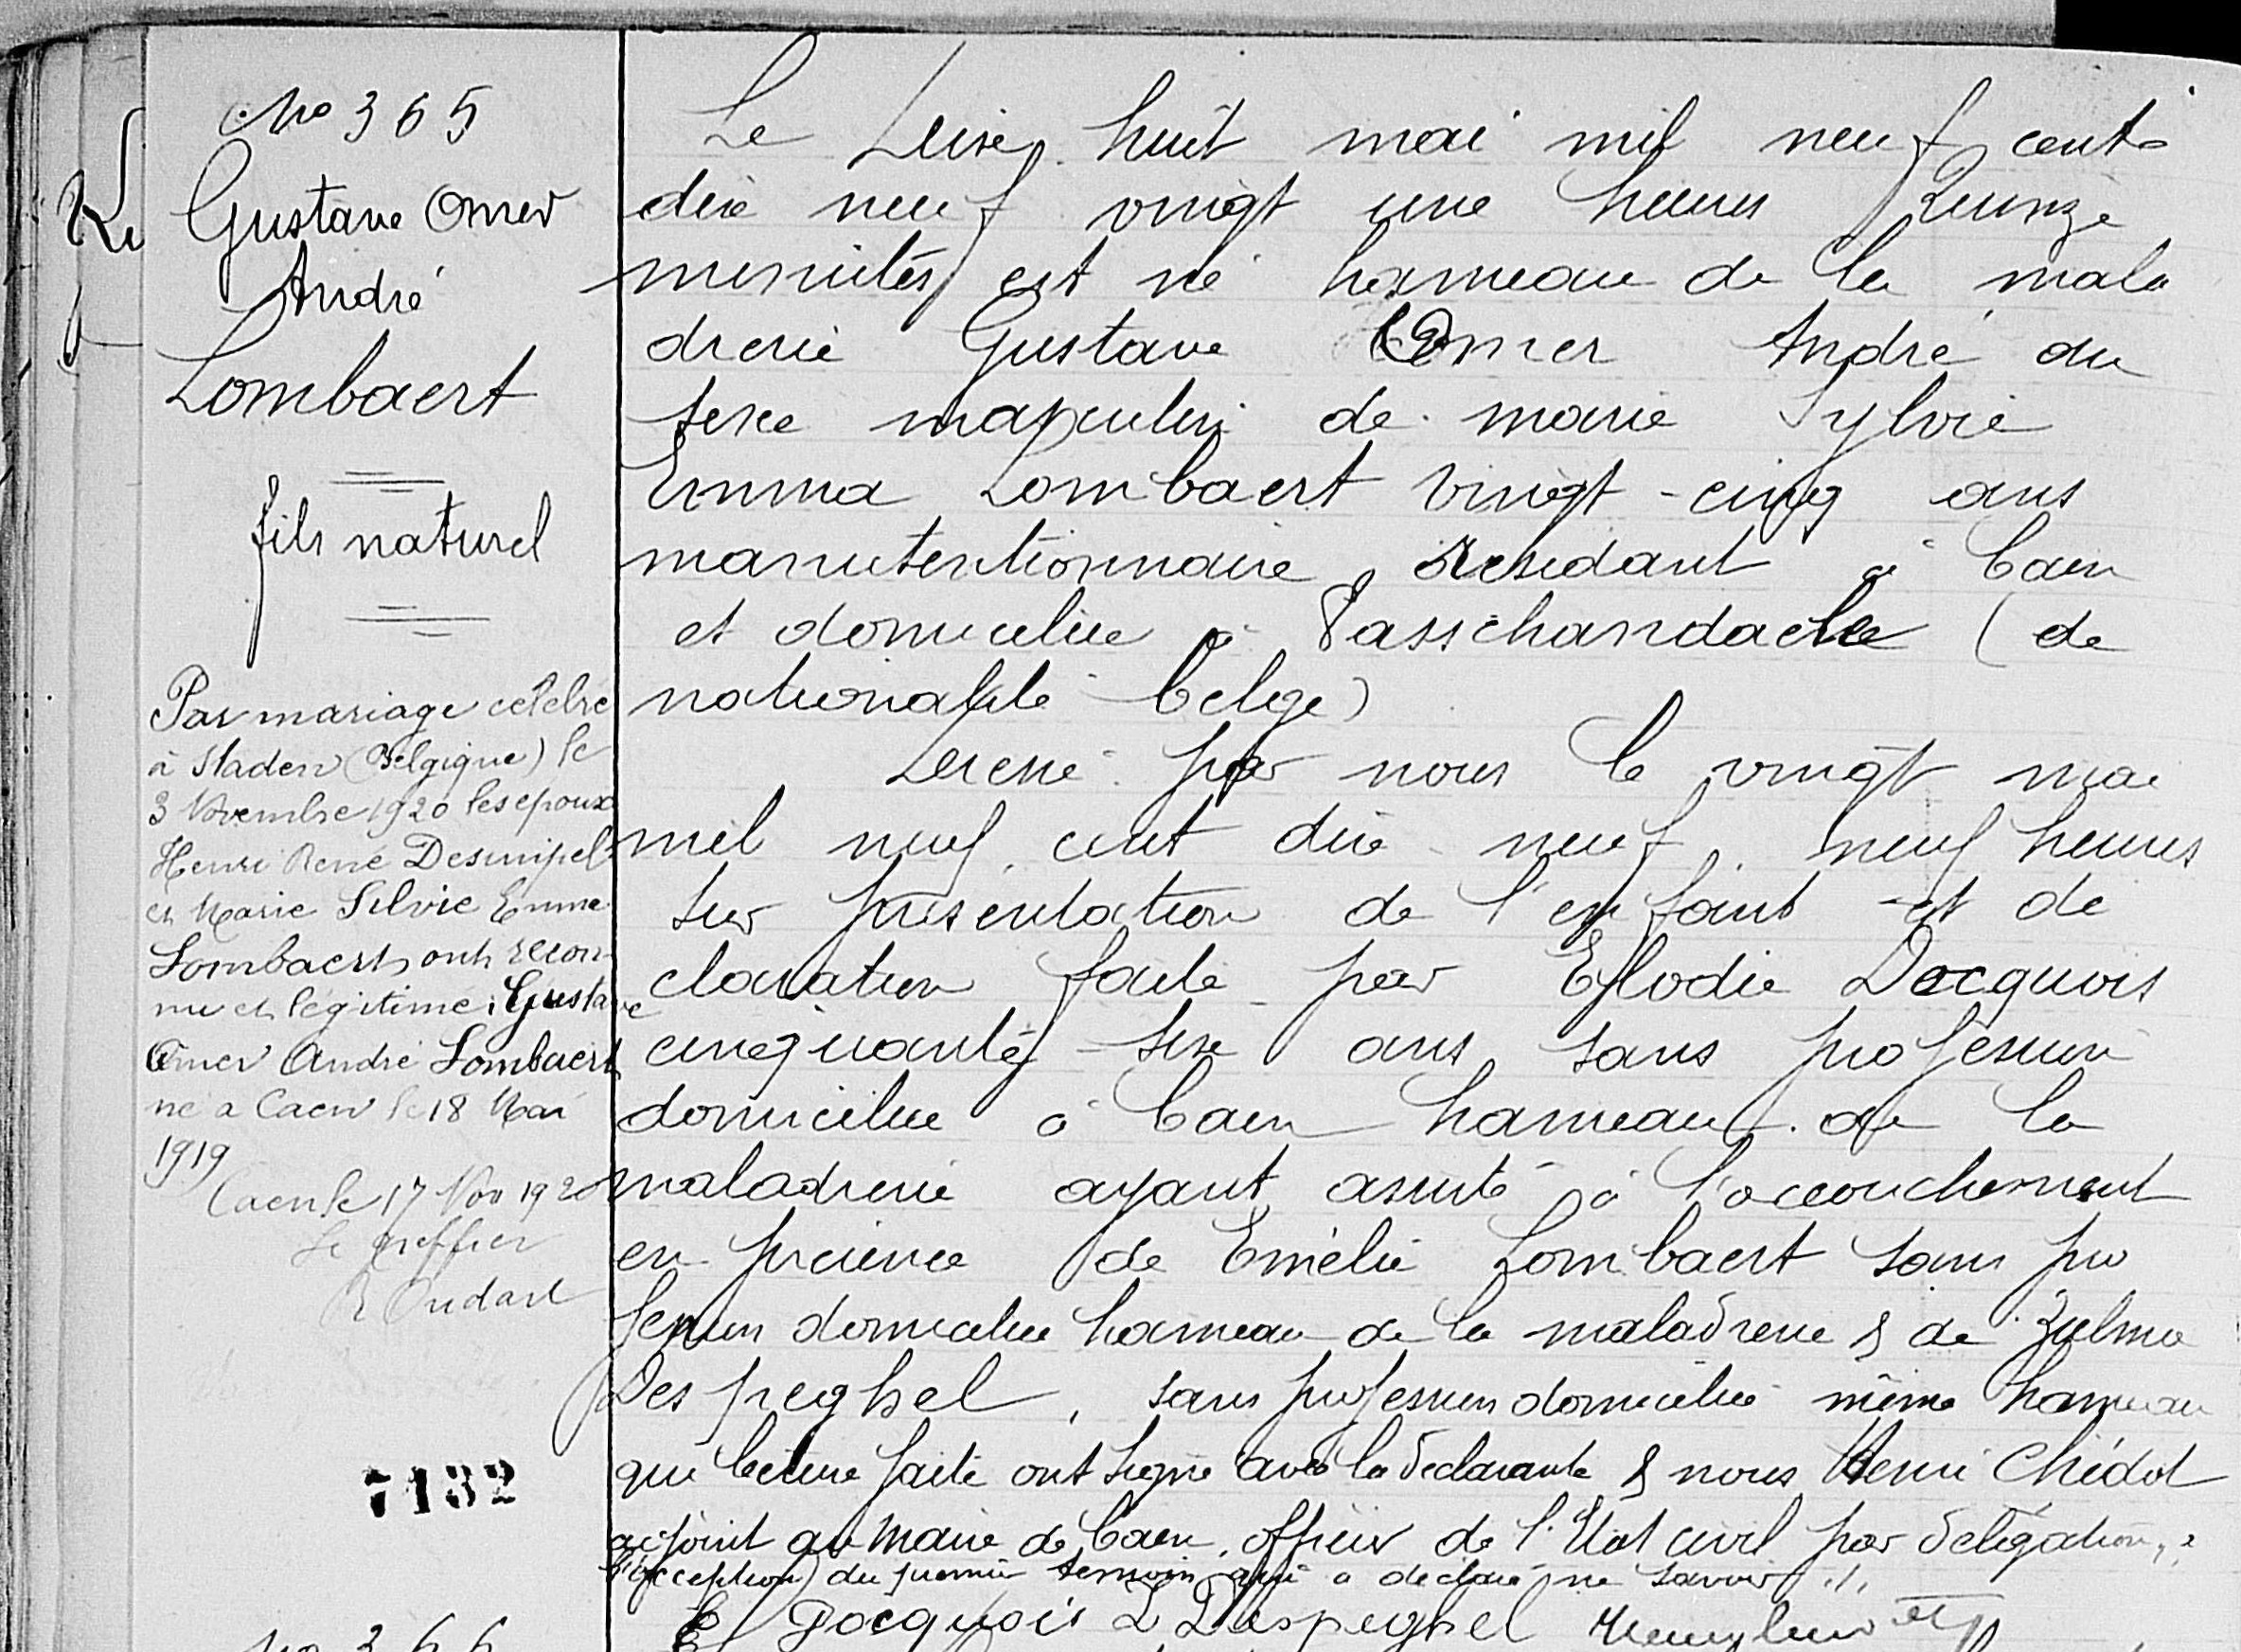 No 365
Gustave Omer
André
Lombaert
fils naturel
Par mariage célébré
à Staden (Belgique) le
3 Novembre 1920 les époux
Henri René Desmipel
et Marie Silvie Emma
Lombaert ont recon
nu et légitimé Gustave
Omer André Lombaert
né a Caen le 18 Mai
1919
Caen le 17 Nov 1920
Le greffier
R Oudart
7132
Le dix huit mai mil neuf cent
dix neuf vingt une heures quinze
minutes est né hameau de la mala
drerie Gustave Omer André du
sexe masculin de marie Sylvie
Emma Lombaert vingt-cinq ans
manutentionnaire résidant à Caen
et domiciliée à Passchandaele (de
nationalité belge)
Dressé par nous le vingt mai
mil neuf cent dix neuf neuf heures
sur présentation de l'enfant et dé
claration faite par Elodie Docquois
cinquante six ans sans profession
domiciliée à Caen hameau de la
maladrerie ayant assisté à l'accouchement
en présence de Emélie Lombaert sans pro
fession domiciliée hameau de la maladrerie & de Zulma
Despreghel, sans profession domiciliée même hameau
qui lecture faite ont signé avec la déclarante & nous Henri Chédot
adjoint au Maire de Caen, officier de l'Etat civil par délégation, à
l'exception du premier témoin qui a déclaré ne savoir ./.
E Docquois Z Despeghel
No 366